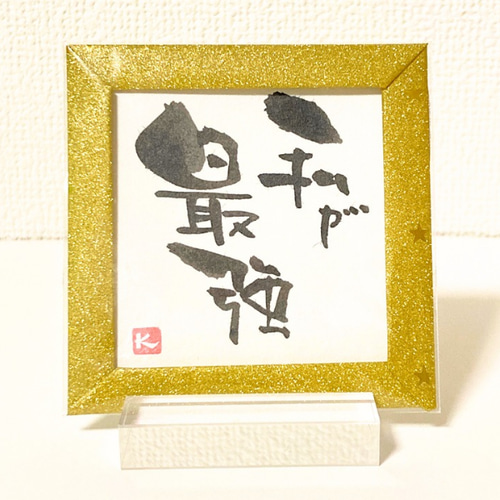 私が
最強
K